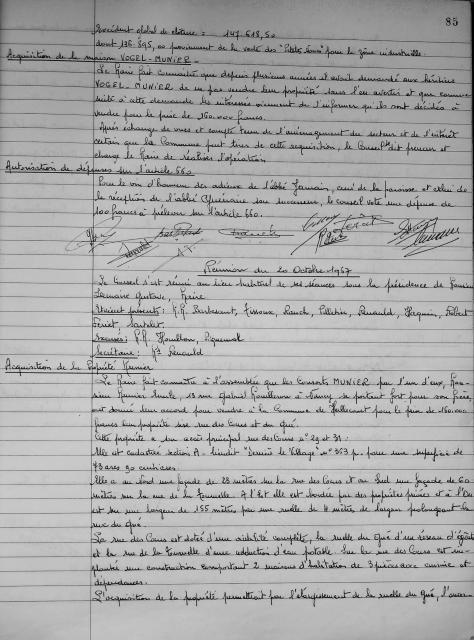 85
Excédent global de clôture = 147.618,50
dont 136.895,00 proviennent de la vente des "Petits Sours" pour la zône industrielle.
Acquisition de la maison VOGEL-MUNIER -
Le Maire fait connaître que depuis plusieurs années il avait demandé aux héritiers
VOGEL-MUNIER de ne pas vendre leur propriété sans l'en avertir et que comme
suite à cette demande les intéressés viennent de l'informer qu'ils sont décidés à
vendre pour le prix de 160.000 francs.
Après échange de vues et compte tenu de l'aménagement du secteur et de l'intérêt
certain que la Commune peut tirer de cette acquisition, le Conseil dit preneur et
charge le Maire de réaliser l'opération
Autorisation de dépenses sur l'article 660
Pour le vin d'honneur des adieux de l'abbé, curé de la paroisse et celui de
la réception de l'abbé son successeur, le conseil vote une dépense de
100 francs à prélever sur l'article 660.
Réunion du 20 Octobre 1967
Le Conseil s'est réuni au lieu habituel de ses séances sous la présidence de Monsieur
Lemaire Gustave, Maire
Etaient présents : M.M. Rauch, Pelletier, Renauld, Jacquin, Robert
Excusés : M.M. Houillon,
Secrétaire : Mr Renauld
Acquisition de la Propriété Munier
Le Maire fait connaître à l'assemblée que les Consorts MUNIER par l'un d'eux, Mon-
sieur Munier Emile, 13 rue Gabriel à Nancy se portant fort pour son frère,
ont donné leur accord pour vendre à la Commune de pour le prix de 160.000
francs leur propriété sise rue des Cours et du Gué.
Cette propriété a son accès principal rue des Cours n° 29 et 31.
Elle est cadastrée section A - lieudit "Derrière le Village" n° 363 p. pour une superficie de
43 ares 90 centiares.
Elle a au Nord une façade de 23 mètres sur la rue des Cours et au Sud une façade de 60
mètres sur la rue de la. A l'Est elle est bordée par des propriétés privées et à l'Ou-
est sur une longueur de 155 mètres par une ruelle de 4 mètres de largeur prolongeant la
rue du Gué.
La rue des Cours est dotée d'une viabilité complète, la ruelle du Gué d'un réseau d'égouts
et la rue de la d'une adduction d'eau potable. Sur la rue des Cours est im-
plantée une construction comportant 2 maisons d'habitation de 3 pièces avec cuisine et
dépendances.
L'acquisition de la propriété permettrait par l'élargissement de la ruelle du Gué,